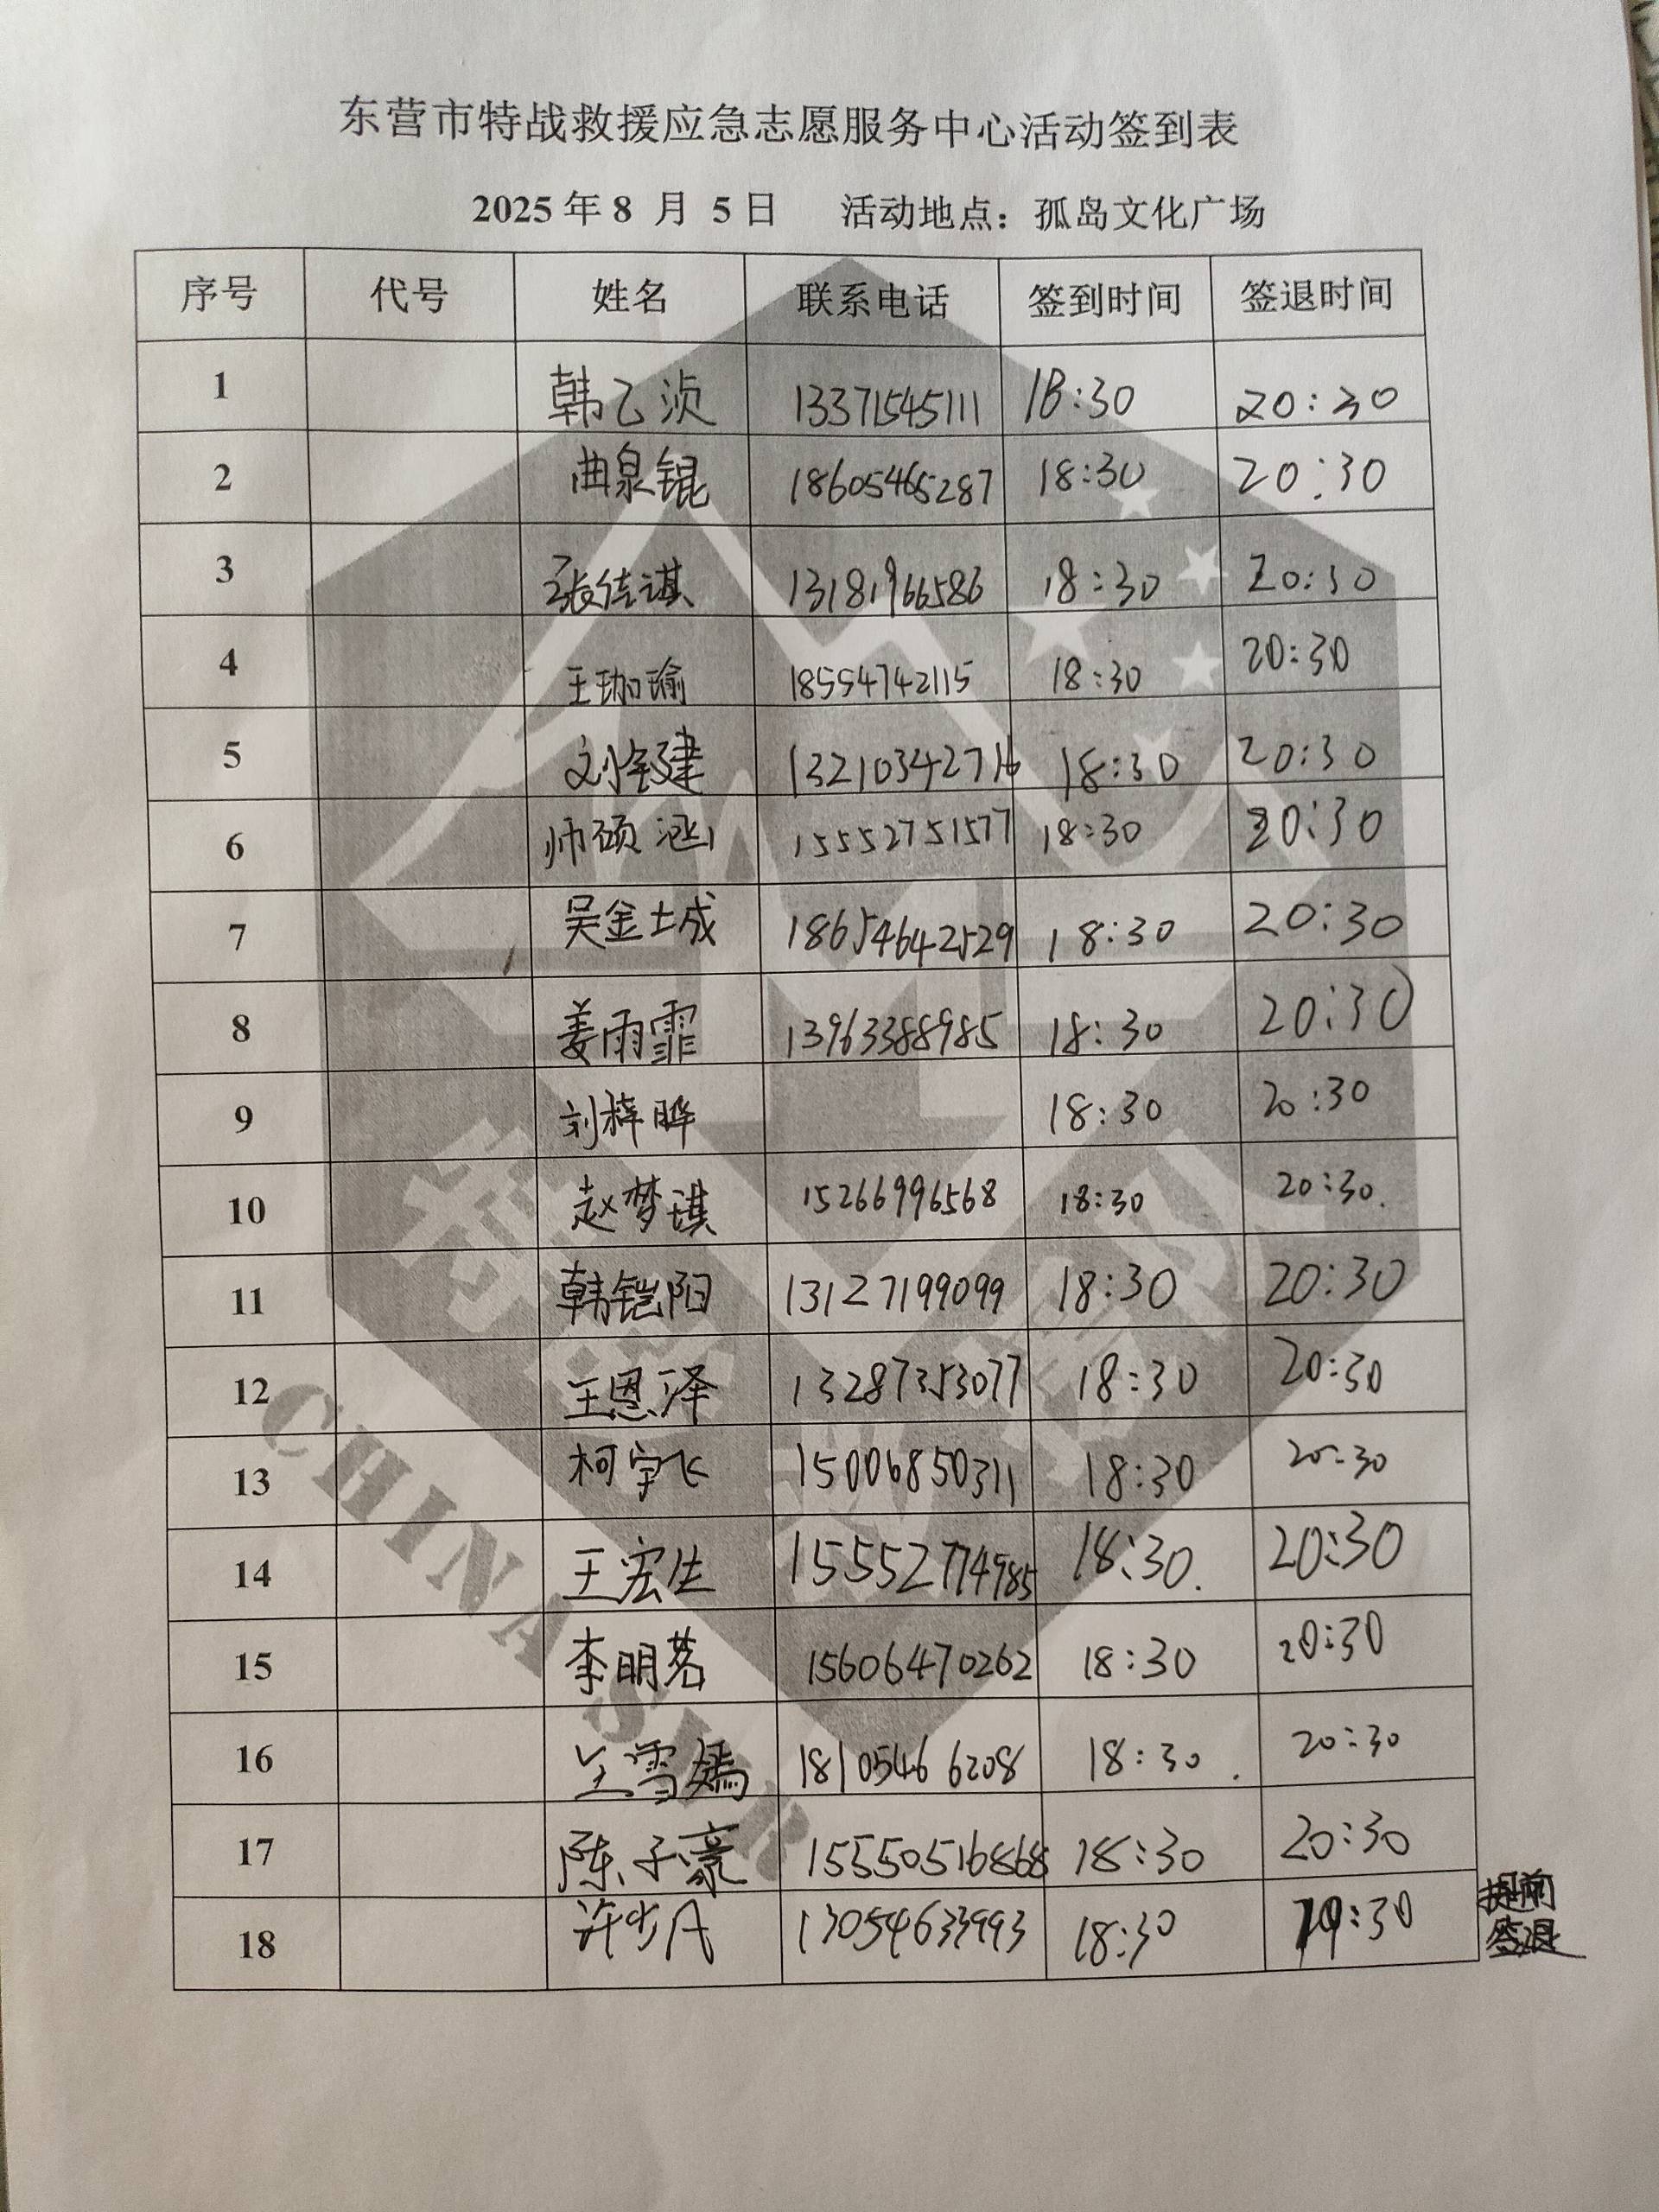 东营市特战救援应急志愿服务中心活动签到表
2025 年 8 月 5 日 活动地点：孤岛文化广场
序号 代号 姓名 联系电话 签到时间 签退时间
1 韩乙浈 13371545111 18:30 20:30
2 曲泉锟 18605465287 18:30 20:30
3 张佳淇 13181966586 18:30 20:30
4 王珈瑜 18554742115 18:30 20:30
5 刘宝建 13210342716 18:30 20:30
6 帅硕涵 15552751577 18:30 20:30
7 吴金城 18654642529 18:30 20:30
8 姜雨霏 13963388985 18:30 20:30
9 刘梓晔 18:30 20:30
10 赵梦琪 15266996568 18:30 20:30.
11 韩铠阳 13127199099 18:30 20:30
12 王恩泽 13287353077 18:30 20:30
13 柯宇飞 15006850311 18:30 20:30
14 王宏生 15552774985 18:30. 20:30
15 李明茗 15606470262 18:30 20:30
16 王雪嫣 18105466208 18:30 . 20:30
17 陈子豪 15550516868 18:30 20:30
18 许少凡 13054633993 18:30 19:30 提前
签退
CHINA